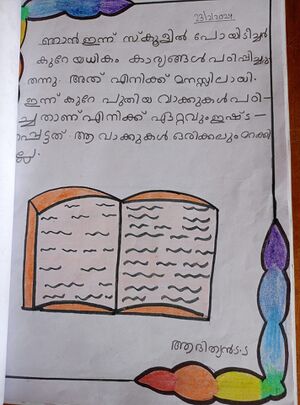 23/2/2024
ഞാൻ ഇന്ന് സ്കൂളിൽ പോയി ടീച്ചർ
കുറേയധികം കാര്യങ്ങൾ പഠിപ്പിച്ചു
തന്നു. അത് എനിക്ക് മനസ്സിലായി.
ഇന്ന് കുറേ പുതിയ വാക്കുകൾ പഠി-
ച്ചതാണ് എനിക്ക് ഏറ്റവും ഇഷ്ട-
പ്പെട്ടത്. ആ വാക്കുകൾ ഒരിക്കലും മറക്കി
ല്ല.